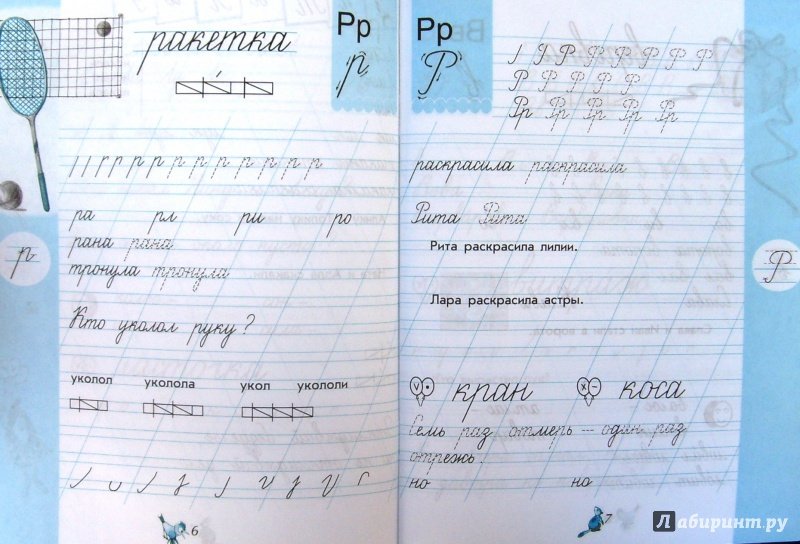 ракетка
Рр
р
р р р р р р р р р р
ра рл ри ро
рана рана
тронула тронула
р
Кто уколол руку?
уколол уколола укол укололи
6
Рр
Р
Р Р Р Р Р Р
Р Р Р Р Р
Рр Рр Рр Рр Рр
раскрасила раскрасила
Рита Рита
Рита раскрасила лилии.
Р
Лара раскрасила астры.
кран коса
Семь раз отмерь — один раз
отрежь!
но но
7
Лабиринт.ру